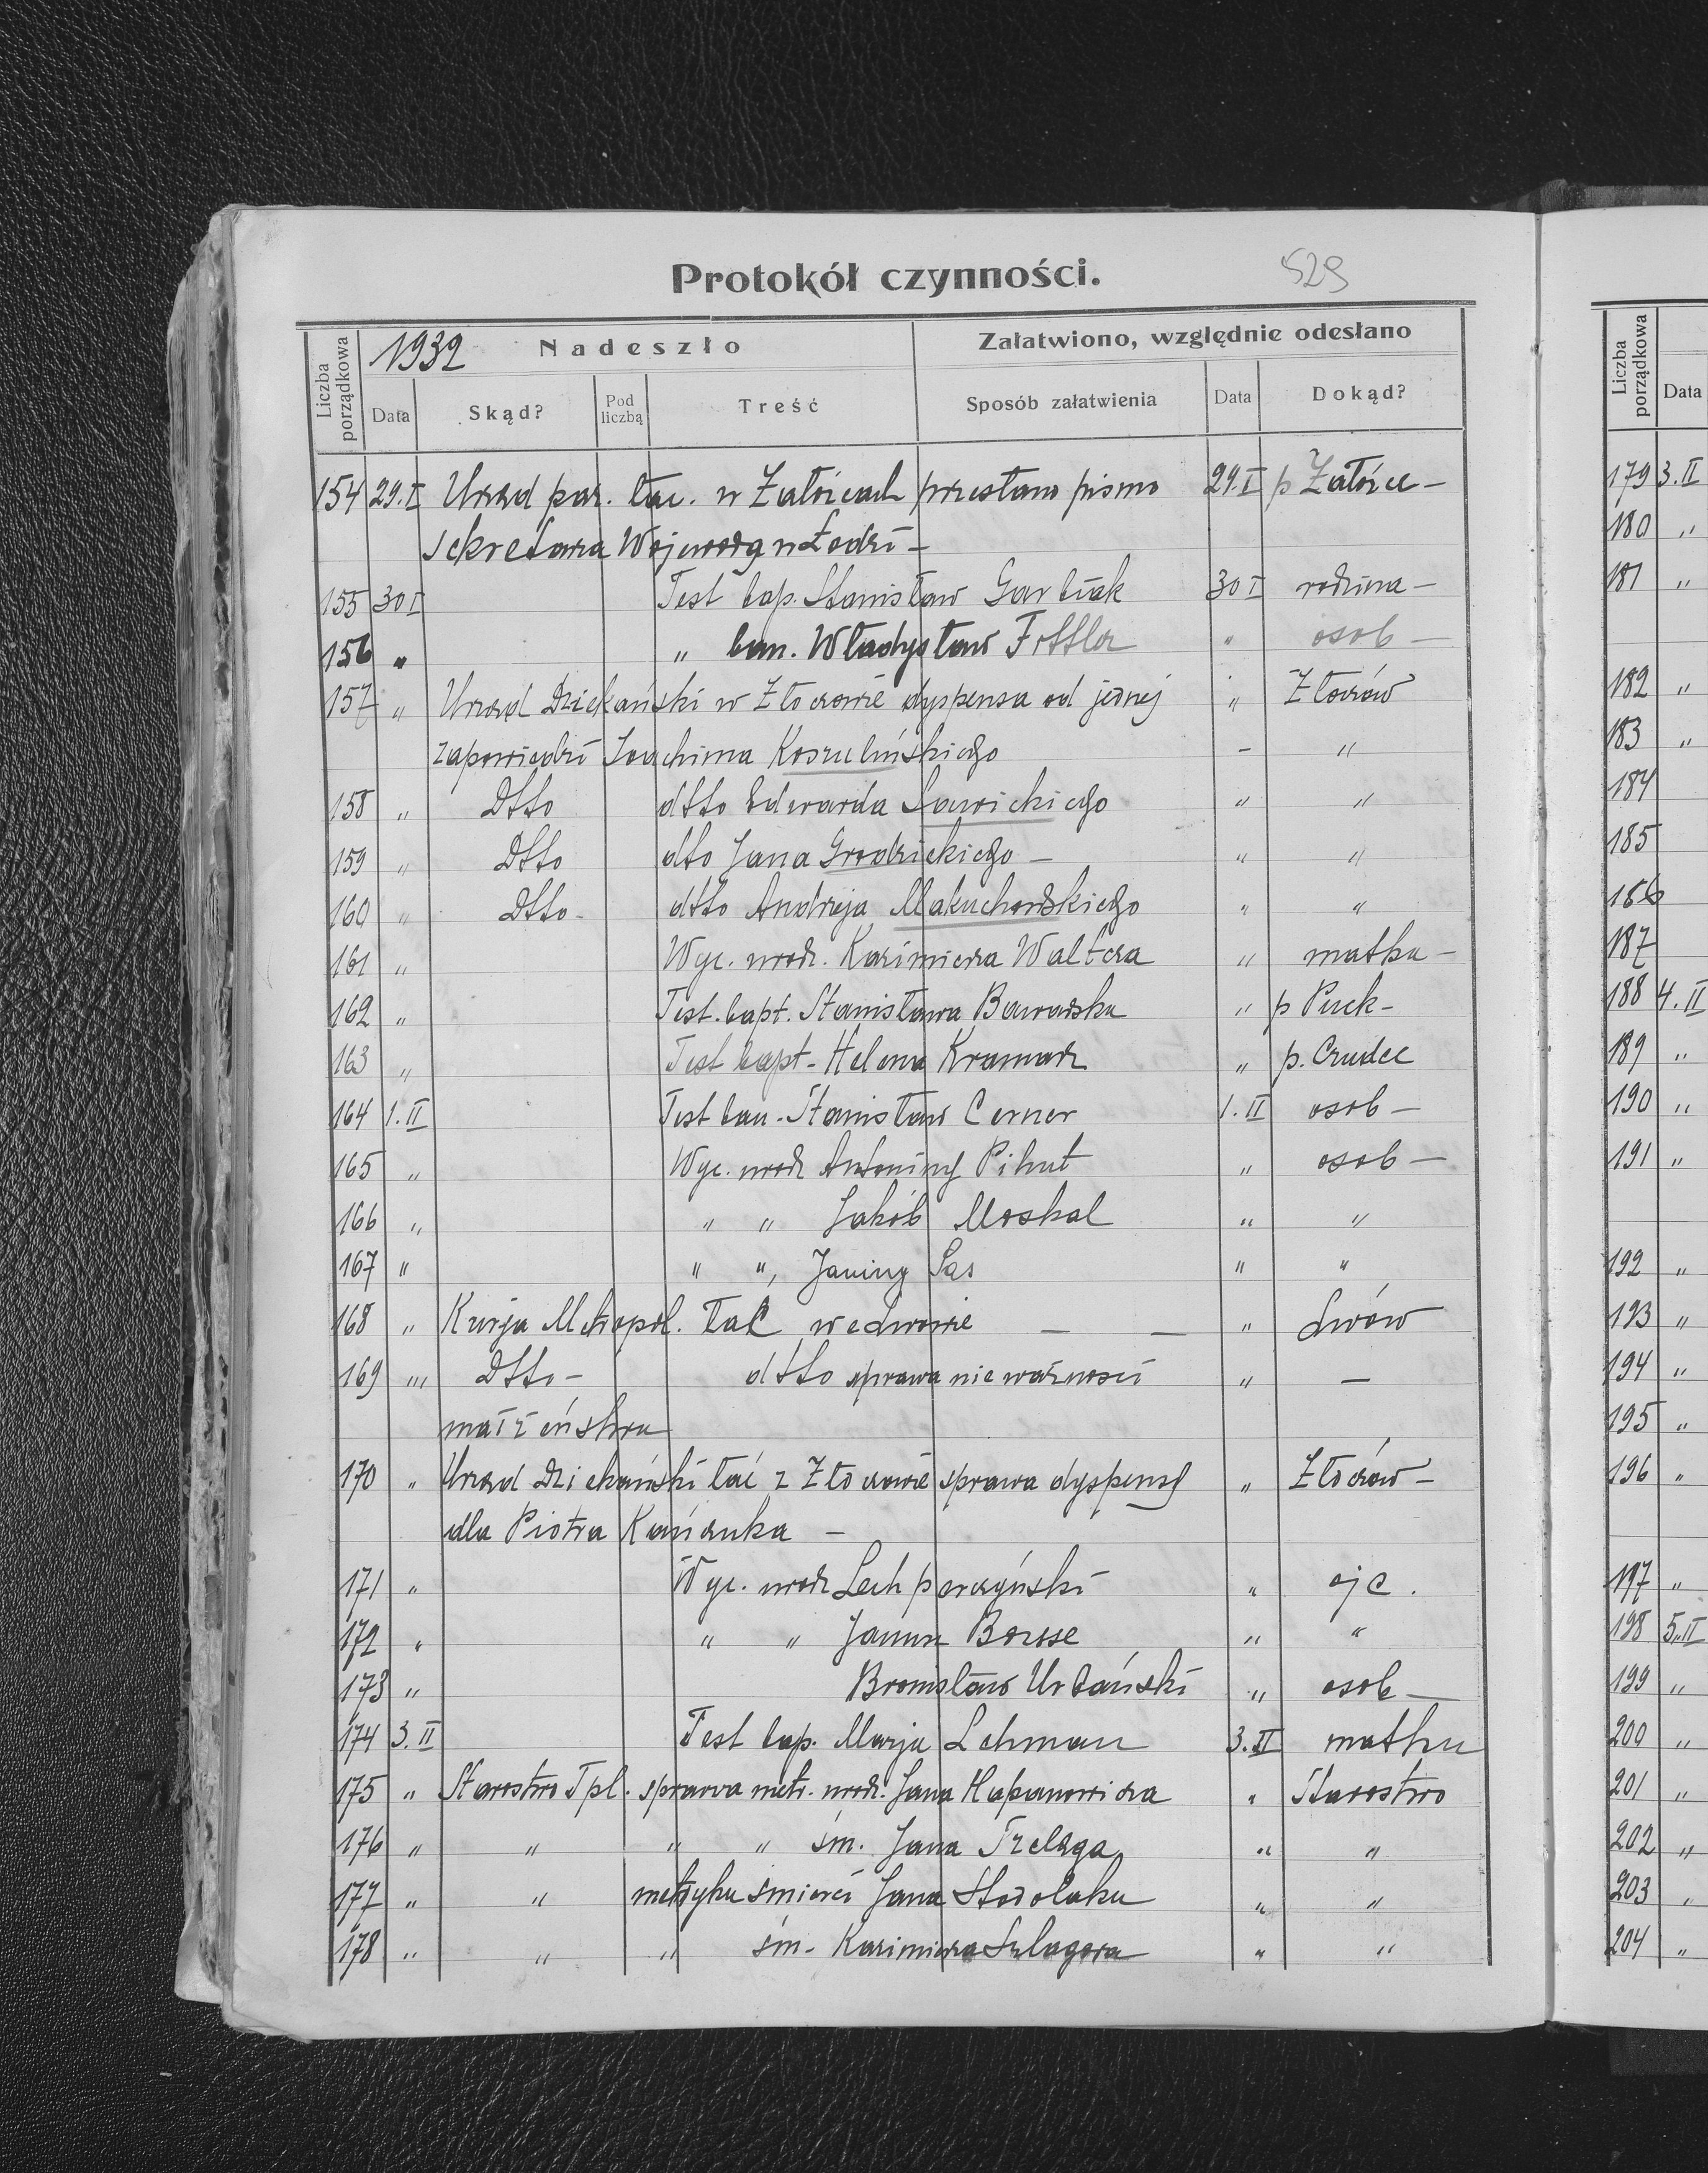 Protokół czynności.
529
1932 Nadeszło Załatwiono, względnie odesłano
Liczba porządkowa Data Skąd? Pod liczbą Treść Sposób załatwienia Data Dokąd?
154 29.I Urząd par. łac. w Załoźcach przesłano pismo 29.I p Załoźce –
sekretarza Wojewody w Łodzi –
155 30 I Test bap. Stanisław Garbiak 30 I rodzina –
156 " " ban. Władysław " osob –
157 " Urząd Dziekański w Złoczowie dyspensa od jednej " Złoczów
zapowiedzi Joachima Koszulińskiego – "
158 " Dtto dtto Edwarda Sawickiego " "
159 " Dtto dto Jana Grodzickiego – " "
160 " Dtto - dtto Andrzeja Makuchowskiego " "
161 " Wyc. urodz. Kazimierza Waltera " matka –
162 " Test. bapt. Stanisława Bawarska " p Puck -
163 " Test bapt - Helena Kramarz " p. Czudec
164 1.II Test ban - Stanisław Cerner 1.II osob –
165 " Wyc. urodz Antoniny Pihut " osob –
166 " " " Jakób Moskal " "
167 " " " , Janiny Sas " "
168 " Kurja Metropol. łać we Lwowie – – " Lwów
169 " Dtto – dtto sprawa nieważności " –
małżeństwa
170 " Urząd Dziekański łać z Złoczowie sprawa dyspensy " Złoczów –
dla Piotra Kańczuka –
171 " Wyc. urodz Lech perzyński " ojc .
172 " " " Janusz Borsse " "
173 " Bronisław Urbański " osob –
174 3.II Test bap. Marja Lehman 3.II matka
175 " Starostwo Tpl. sprawa metr. urodz. Jana Hapanowicza " Starostwo
176 " " " " śm. Jana " "
177 " " metryka śmierci Jana Stodolaka " "
178 " " " śm - Kazimierza Szlagora " "
Liczba porządkowa Data
179 3.II
180 "
181 "
182 "
183 "
184
185
186
187
188 4.II
189 "
190 "
191 "
192 "
193 "
194 "
195 "
196 "
197 "
198 5.II
199 "
200 "
201 "
202 "
203 "
204 "